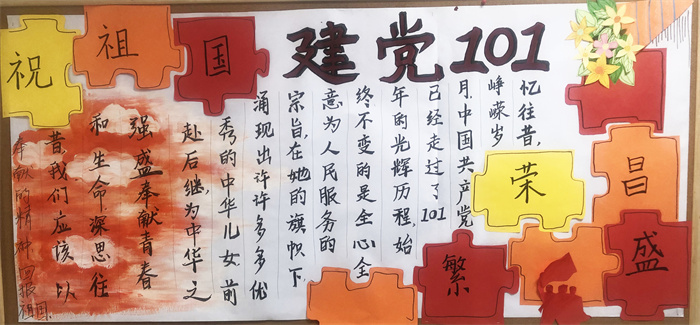 祝祖国
繁荣昌盛
建党101
忆往昔,
峥嵘岁
月,中国共产党
已经走过了101
年的光辉历程,始
终不变的是全心全
意为人民服务的
宗旨,在她的旗帜下
涌现出许许多多优
秀的中华儿女,前
赴后继,为中华之
强盛奉献青春
和生命,深思往
昔,我们应该以
奉献的精神回报
祖国